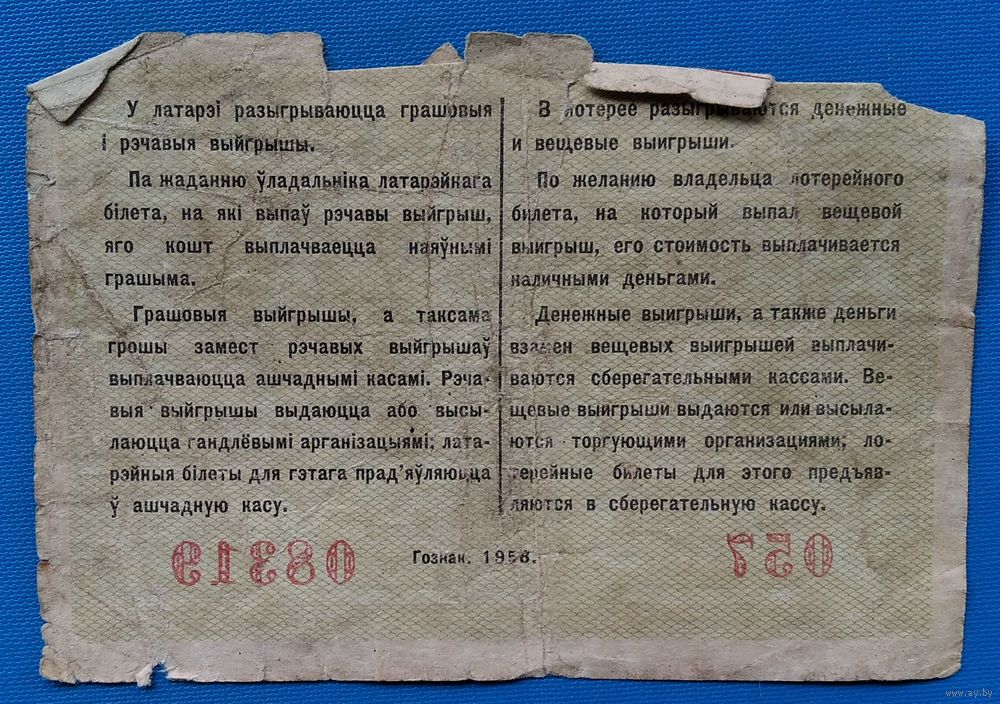 У латарэі разыгрываюцца грашовыя
і рэчавыя выйгрышы.
Па жаданню ўладальніка латарэйнага
білета, на які выпаў рэчавы выйгрыш,
яго кошт выплачваецца наяўнымі
грашыма.
Грашовыя выйгрышы, а таксама
грошы замест рэчавых выйгрышаў
выплачваюцца ашчаднымі касамі. Рэча-
выя выйгрышы выдаюцца або высы-
лаюцца гандлёвымі арганізацыямі; лата-
рэйныя білеты для гэтага прад'яўляюцца
ў ашчадную касу.
В лотерее разыгрываются денежные
и вещевые выигрыши.
По желанию владельца лотерейного
билета, на который выпал вещевой
выигрыш, его стоимость выплачивается
наличными деньгами.
Денежные выигрыши, а также деньги
взамен вещевых выигрышей выплачи-
ваются сберегательными кассами. Ве-
щевые выигрыши выдаются или высыла-
ются торгующими организациями; ло-
терейные билеты для этого предъяв-
ляются в сберегательную кассу.
08319
Гознак. 1958.
057
www.ay.by